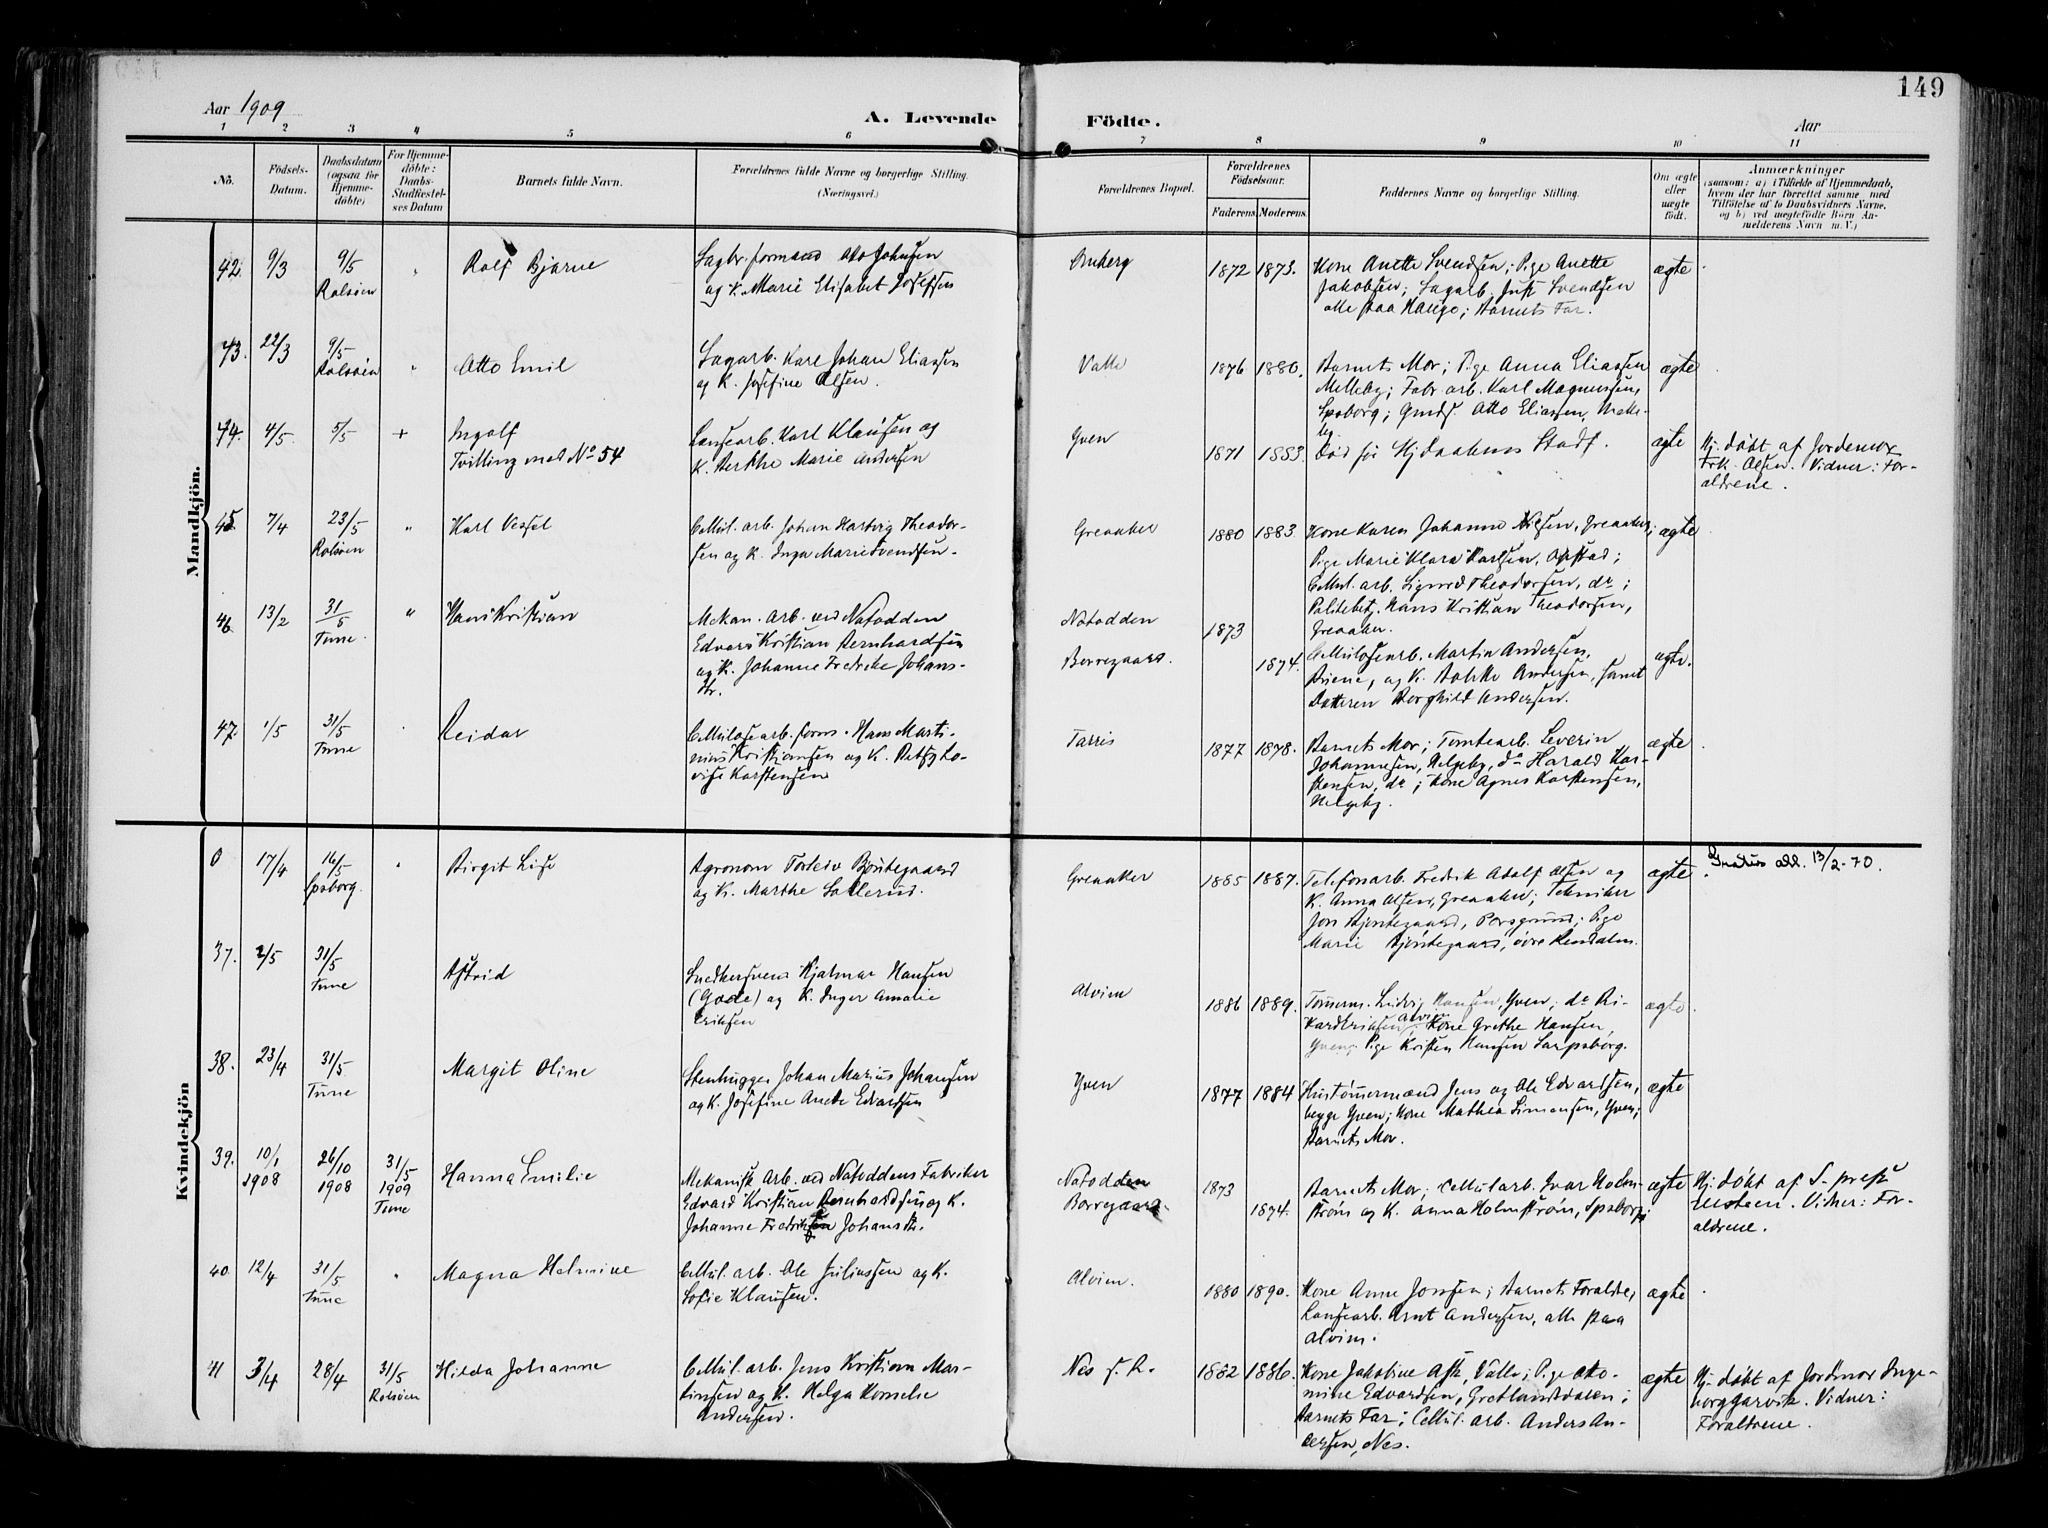 149
Aar 1909
A. Levende
Födte.
Aar
1 2 3 4 5 6 7 8 9 10 11
No.
Födsels-
Datum.
Daabsdatum
(ogsaa for
Hjemme-
döbte)
For Hjemme-
döbte:
Daabs-
Stadfæstel-
ses Datum
Barnets fulde Navn.
Forældrenes fulde Navne og borgerlige Stilling.
(Næringsvei.)
Forældrenes Bopæl.
Forældrenes
Födselsaar.
Faderens. Moderens.
Faddernes Navne og borgerlige Stilling.
Om ægte
eller
uægte
födt.
Anmærkninger
(saasom: a) i Tilfælde af Hjemmedaab,
hvem der har forrettet samme med
Tilföielse af to Daabsvidners Navne,
og b) ved uægtefödte Börn An-
melderens Navn m. V.)
Mandkjön.
42. 9/3 9/5 Rolsöen " Rolf Bjarne
Sagbr. formand Olo Johnsen
og K. Marie Elisabet Josefsen
1872 1873.
Kone Anette Svendsen; Pige Anette
Jakobsen; Sagarb. Just Svendsen
alle paa Hauge; Barnets Far.
ægte
43. 22/3 9/5 Rolsöen " Otto Emil
Sagarb. Karl Johan Eliassen
og K. Josefine Olsen.
Valle
1876 1880.
Barnets Mor; Pige Anna Eliassen
Melleby; Fabr arb. Karl Magnussen,
Spsborg; Gmds. Otto Eliassen, Melle-
by
ægte
44. 4/5 5/5 + Ingolf
Tvilling med No 54
Landsearb. Karl Klausen og
K. Berthe Marie Andersen
Yven
1871 1883.
Död för Hj. daabens Stadf.
ægte
Hj. döbt af Jordemor
Frk. Olsen. Vidner: For-
ældrene.
45. 7/4 23/5 Rolsöen " Karl Vessel
Cellul. arb. Johan Hartvig Theodor-
sen og K. Inga Marie Svendsen.
Greaaker
1880 1883.
Kone Karen Johanne Nilsen, Greaaker;
Pige Marie Klara Karlsen, Opstad;
Cellul. arb. Sigurd Theodorsen, do;
Politibetj. Hans Kristian Theodorsen,
Greaaker.
ægte
46. 13/2 31/5 Tune. " Hans Kristian
Mekan. arb. ved Notodden
Edvard Kristian Bernhardsen
og K. Johanne Fredrike Johans-
dtr.
Notodden
Borregaard.
1873
1874.
Cellulosearb. Martin Andersen,
og K. Bolette Andersen, samt
Datteren Borghild Andersen.
ægte.
47. 1/5 31/5 Tune Reidar
Cellulosearb. form. Hans Marti-
nius Kristiansen og K. Betzy Lo-
vise Karstensen
Tarris
1877 1878.
Barnets Mor; Tomtearb. Severin
Johannesen, Helgeby, do Harald Kar-
stensen, do; Kone Agnes Karstensen,
Helgeby.
ægte
Kvindekjön
0 17/4 16/5 Spsborg. " Birgit Lise
Agronom Torleiv Björtegaard
og K. Marthe Sollerud.
Greaaker
1885 1887.
Telefonarb. Fredrik Adolf Olsen og
K. Anna Olsen, Greaaker; Tekniker
Jon Björtegaard, Porsgrund; Pige
Marie Björtegaard, övre Rendalen.
ægte
Gratis att. 13/2-70.
37. 2/5 31/5 Tune Astrid
Snedkersvend Hjalmar Hansen
(Gode) og K. Inger Amalie
Eriksen
Alvim
1886 1889.
Tömerm. Ludvig Hansen, Yven; do Ri-
kard Eriksen, Alvim; Kone Grethe Hansen,
Yven; Pige Kristen Hansen Sarpsborg.
ægte
38. 23/4 31/5 Tune Margit Oline
Stenhugger Johan Marius Johansen
og K. Josefine Anette Edvardsen
Yven
1877 1884
Hustömermænd Jens og Ole Edvardsen,
begge Yven; Kone Mathea Simensen, Yven;
Barnets Mor.
ægte
39. 10/1 1908 26/10 1908 31/5 1909 Tune Hanna Emilie
Mekanisk Arb. ved Notoddens Fabriker
Edvard Kristian Bernhardsen og K.
Johanne Fredriksen Johansdt.
Notodden
Borregaard.
1873
1874.
Barnets Mor; Cellul arb. Ivar Holm-
ström og K. Anna Holmström, Spsborg;
ægte
Hj. döbt af S. prest
Usteen. Vidner: For-
ældrene.
40 12/4 31/5 Tune " Magna Helmine
Cellul. arb. Ole Juliussen og K.
Sofie Klausen.
Alvim.
1880 1890.
Kone Anne Jonssen; Barnets Foraldre;
Landsearb. Arnt Andersen, alle paa
Alvim.
ægte
41 3/4 28/4 31/5 Rolsöen Hilda Johanne
Cellul. arb. Jens Kristian Mar-
tinsen og K. Helga Kornelie
Andersen.
Nes f. R.
1882 1886.
Kone Jakobine Ask, Valle; Pige Otto-
mine Edvardsen, Gretlandsdalen;
Barnets Far; Cellul. arb. Anders An-
dersen, Nes.
ægte
Hj. döbt af Jordmor Inge-
borg Garvik. Vidner:
Foraldrene